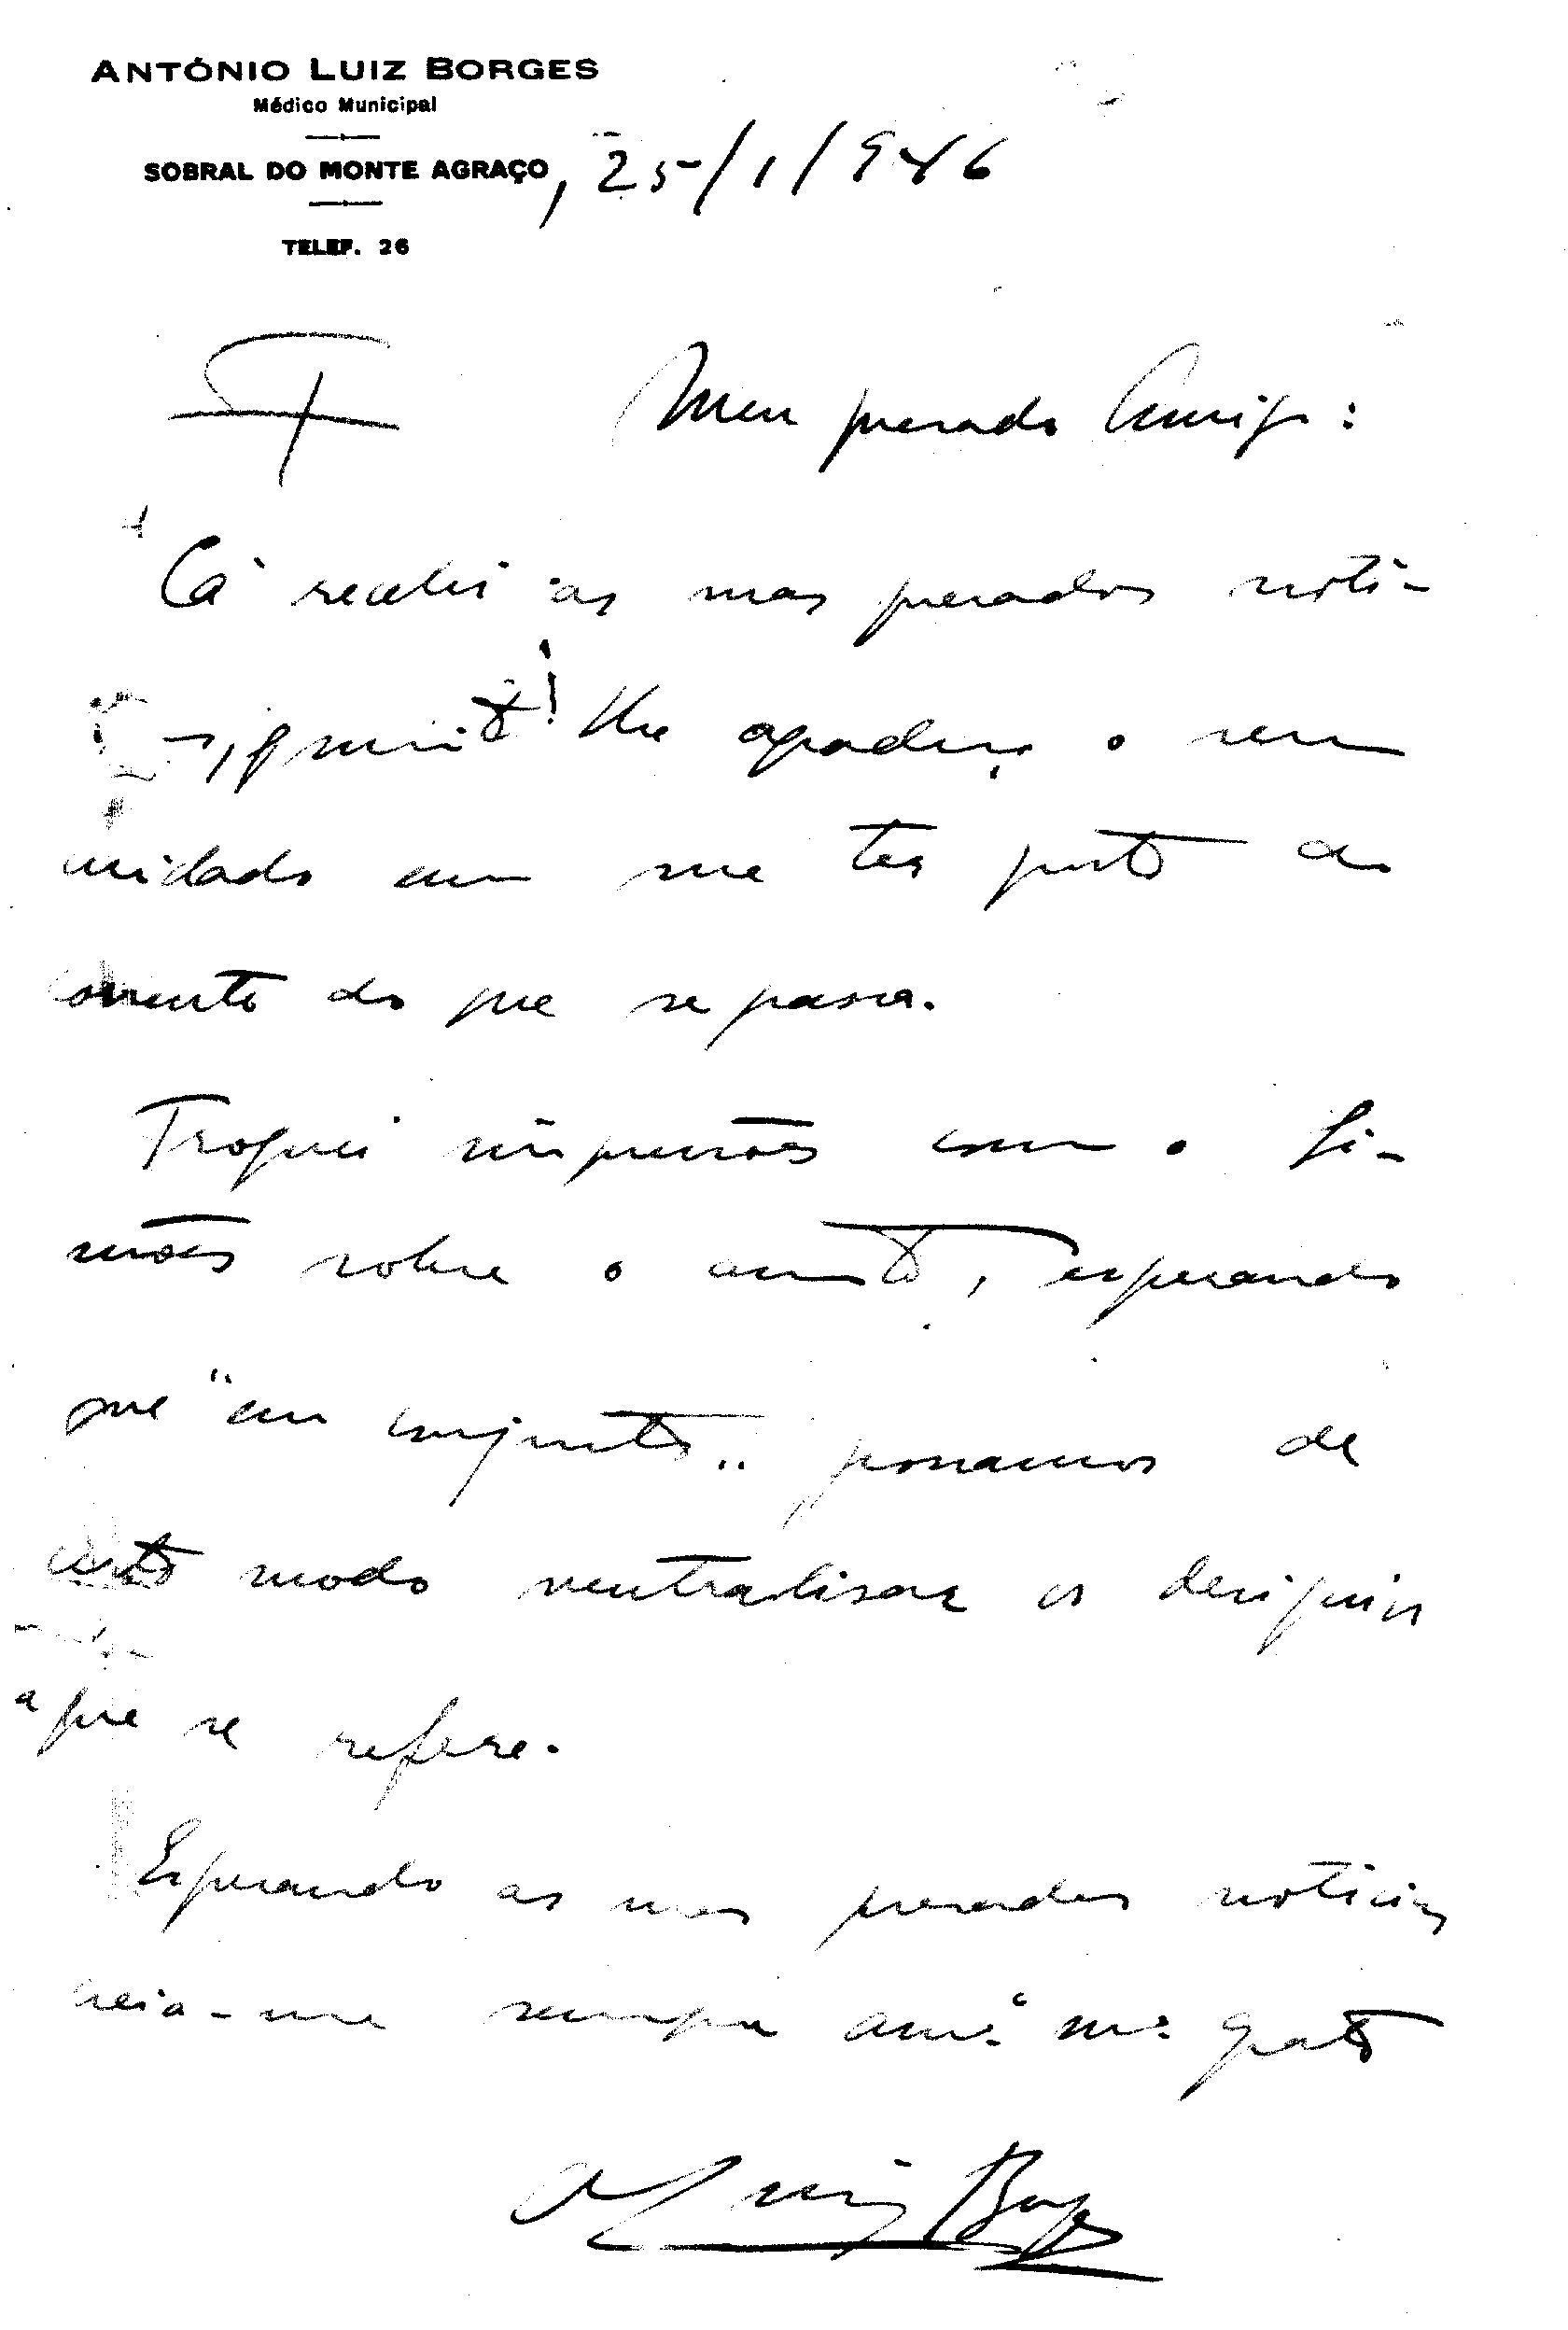 ANTÓNIO LUIZ BORGES
Médico Municipal
SOBRAL DO MONTE AGRAÇO, 25/1/946
TELEF. 26
Meu presado Amigo:
Cá recebi as suas presadas noti-
muito lhe agradeço o seu
cuidado em me ter posto ao
corrente do que se passa.
Troquei impressões com o Si-
mões sobre o assunto, esperando
que "em conjunto" possamos de
certo modo neutralisar os designios
a que se refere.
Esperando as suas presadas noticias
creia-me sempre am.º m.º grato
A Luiz Borges